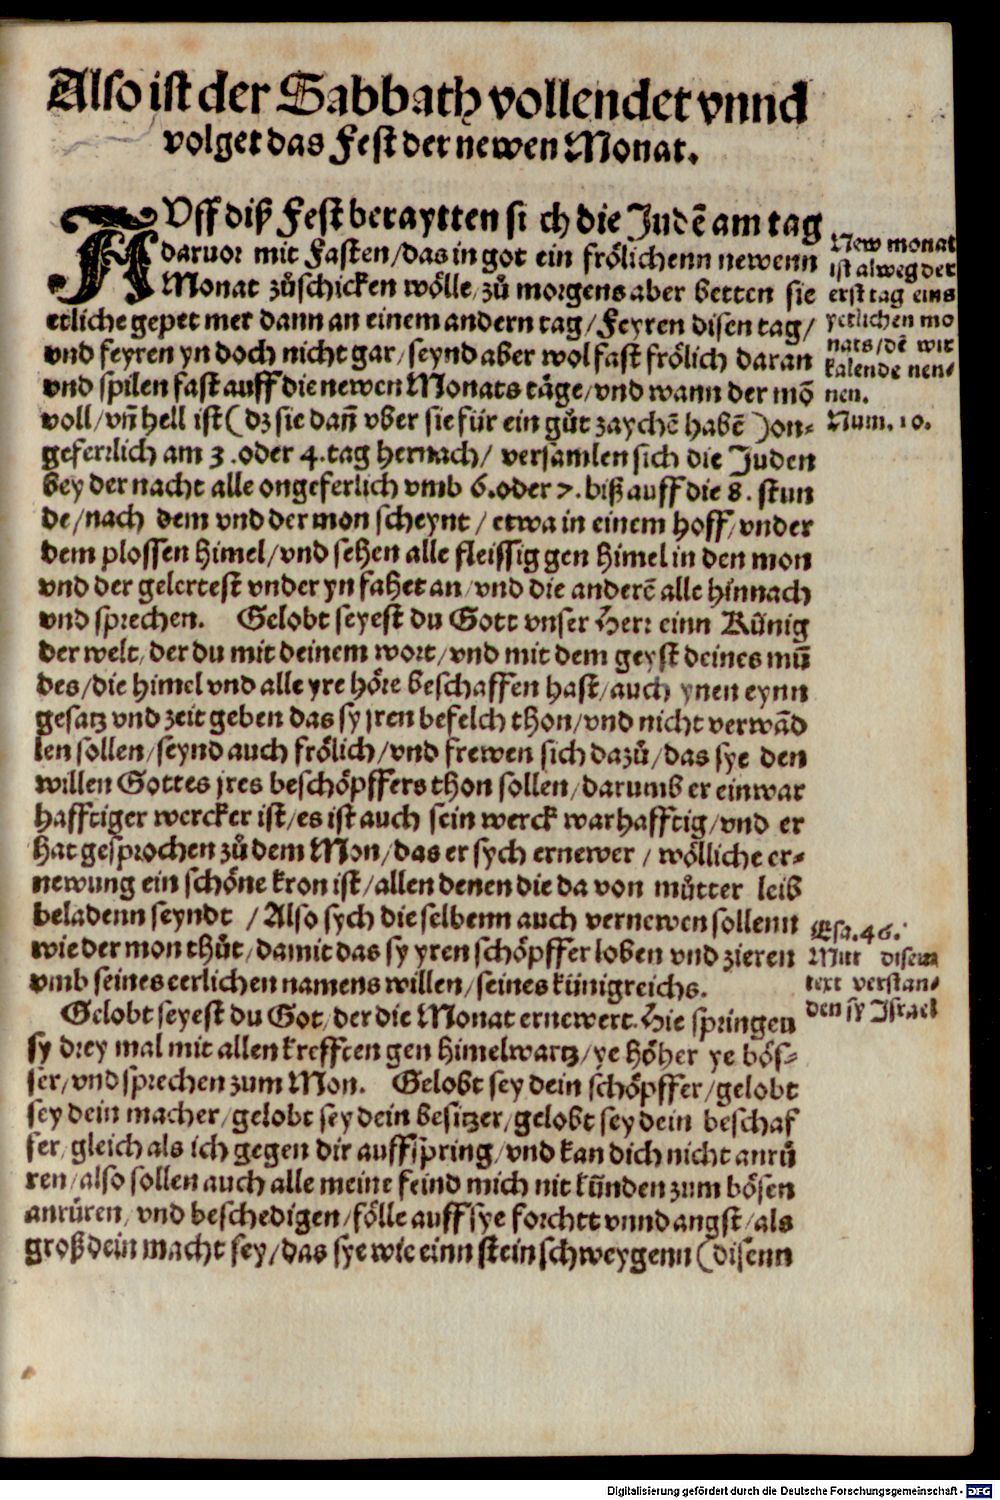 Also ist der Sabbath vollendet vnnd
volget das Fest der newen Monat.
AUff diß Fest beraytten si ch die Judē am tag
daruor mit Fasten/das in got ein frölichenn newenn
Monat zůschicken wölle/zů morgens aber betten sie
etliche gepet mer dann an einem andern tag/Feyren disen tag/
vnd feyren yn doch nicht gar/seynd aber wol fast frölich daran
vnd spilen fast auff die newen Monats täge/vnd wann der mō
voll/vn̄ hell ist (dz sie dan̄ vber sie für ein gůt zaychē habē) on-
geferrlich am 3. oder 4. tag hernach/ versamlen sich die Juden
bey der nacht alle ongeferlich vmb 6. oder 7. biß auff die 8. stun
de/nach dem vnd der mon scheynt/ etwa in einem hoff/vnder
dem plossen himel/vnd sehen alle fleissig gen himel in den mon
vnd der gelertest vnder yn fahet an/vnd die anderē alle hinnach
vnd sprechen. Gelobt seyest du Gott vnser Herr einn Künig
der welt/der du mit deinem wort/vnd mit dem geyst deines mū
des/die himel vnd alle yre höre beschaffen hast/auch ynen eynn
gesatz vnd zeit geben das sy jren befelch thon/vnd nicht verwād
len sollen/seynd auch frölich/vnd frewen sich dazů/das sye den
willen Gottes jres beschöpffers thon sollen/darumb er ein war
hafftiger wercker ist/es ist auch sein werck warhafftig/vnd er
hat gesprochen zů dem Mon/das er sych ernewer/ wölliche er-
newung ein schöne kron ist/allen denen die da von můtter leib
beladenn seyndt /Also sych die selbenn auch vernewen sollenn
wie der mon thůt/damit das sy yren schöpffer loben vnd zieren
vmb seines eerlichen namens willen/seines künigreichs.
Gelobt seyest du Got/der die Monat ernewert. Hie springen
sy drey mal mit allen krefften gen himelwartz/ye höher ye bös-
ser/vnd sprechen zum Mon. Gelobt sey dein schöpffer/gelobt
sey dein macher/gelobt sey dein besitzer/gelobt sey dein beschaf
fer/gleich als ich gegen dir auffspring/vnd kan dich nicht anrů
ren/also sollen auch alle meine feind mich nit künden zum bösen
anrüren/vnd beschedigen/fölle auff sye forchtt vnnd angst/als
groß dein macht sey/das sye wie einn stein schweygenn (disenn
New monat
ist alweg der
erst tag eins
yetlichen mo
nats/dē wir
kalende nen-
nen.
Num. 10.
Esa. 46.
Mitt disem
text verstan-
den sy Israel
Digitalisierung gefördert durch die Deutsche Forschungsgemeinschaft - DFG